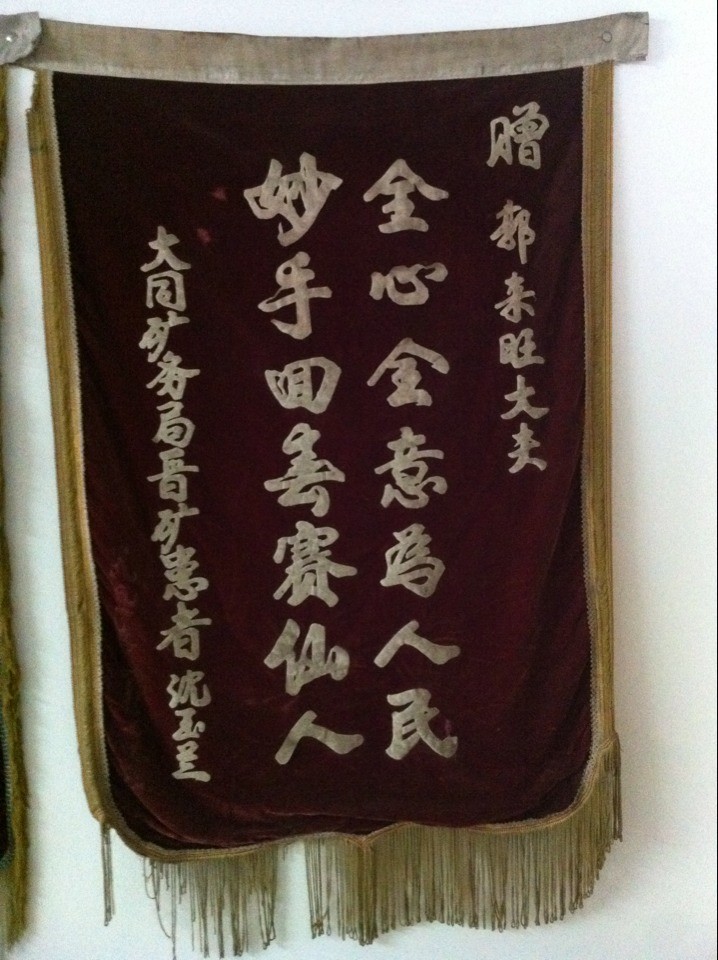 赠 郭来旺大夫
全心全意为人民
妙手回春赛仙人
大同矿务局晋矿患者 沈玉兰